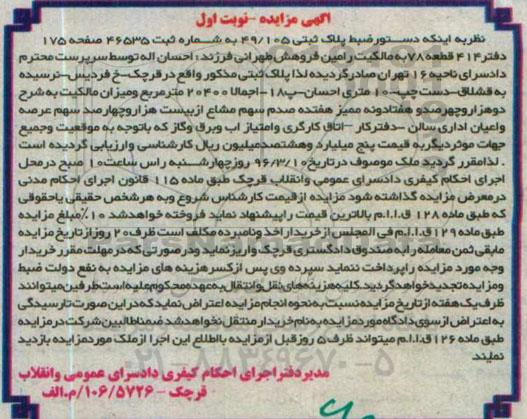 آگهی مزایده -نوبت اول
نظربه اینکه دستورضبط پلاک ثبتی ۴۹/۱۰۵ به شماره ثبت ۴۶۵۳۵ صفحه ۱۷۵
دفتر۴۱۴ قطعه ۷۸به مالکیت رامین فروهش طهرانی فرزند: احسان اله توسط سرپرست محترم
دادسرای ناحیه ۱۶ تهران صادرگردیده لذا پلاک ثبتی مذکور واقع در قرچک-خ فردیس-نرسیده
به قشلاق-دست چپ-۱۰ متری احسان-پ۱۸-اجمالا ۲۰۴۰۰ مترمربع ومیزان مالکیت به شرح
دوهزاروچهارصدو هفتادونه ممیز هفتده صدم سهم مشاع ازبیست هزاروچهارصد سهم عرصه
واعیان اداری سالن -دفترکار -اتاق کارگری وامتیاز اب وبرق وگاز که باتوجه به موقعیت وجمیع
جهات موثردیگر به قیمت پنج میلیارد وهشتصدمیلیون ریال کارشناسی وارزیابی گردیده است
. لذامقرر گردید ملک موصوف درتاریخ ۹۶/۳/۱۰ روزچهارشنبه راس ساعت۱۰ صبح درمحل
اجرای احکام کیفری دادسرای عمومی وانقلاب قرچک طبق ماده ۱۱۵ قانون اجرای احکام مدنی
درمعرض مزایده گذاشته شود مزایده ازقیمت کارشناس شروع وبه هرشخص حقیقی یاحقوقی
که طبق ماده ۱۲۸ ق.ا.ا.م بالاترین قیمت راپیشنهاد نماید فروخته خواهدشد ۱۰٪مبلغ مزایده
طبق ماده۱۲۹ق.ا.ا.م فی المجلس ازخریدار اخذ ونامبرده مکلف است ظرف ۲۰ روزازتاریخ مزایده
مابقی ثمن معامله رابه صندوق دادگستری قرچک واریز نماید ودرصورتی که درمهلت مقرر خریدار
وجه مورد مزایده راپرداخت ننماید سپرده وی پس ازکسر هزینه های مزایده به نفع دولت ضبط
ومزایده تجدیدخواهدگردید.کلیه هزینه های نقل وانتقال به عهده محکوم علیه است طرفین میتوانند
ظرف یک هفته ازتاریخ مزایده نسبت به نحوه انجام مزایده اعتراض نماید که دراین صورت تارسیدگی
به اعتراض ازسوی دادگاه موردمزایده به نام خریدار منتقل نخواهدشد ضمناطالبین شرکت درمزایده
طبق ماده ۱۲۶ ق.ا.ا.م میتواند ظرف ۵ روزقبل ازمزایده بااطلاع این اجرا ازملک موردمزایده بازدید
نمایند
مدیردفتراجرای احکام کیفری دادسرای عمومی وانقلاب
قرچک - ۱۰۶/۵۷۲۶/م.الف
۰۲۱-۸۸۳۴۹۶۷۰-۵